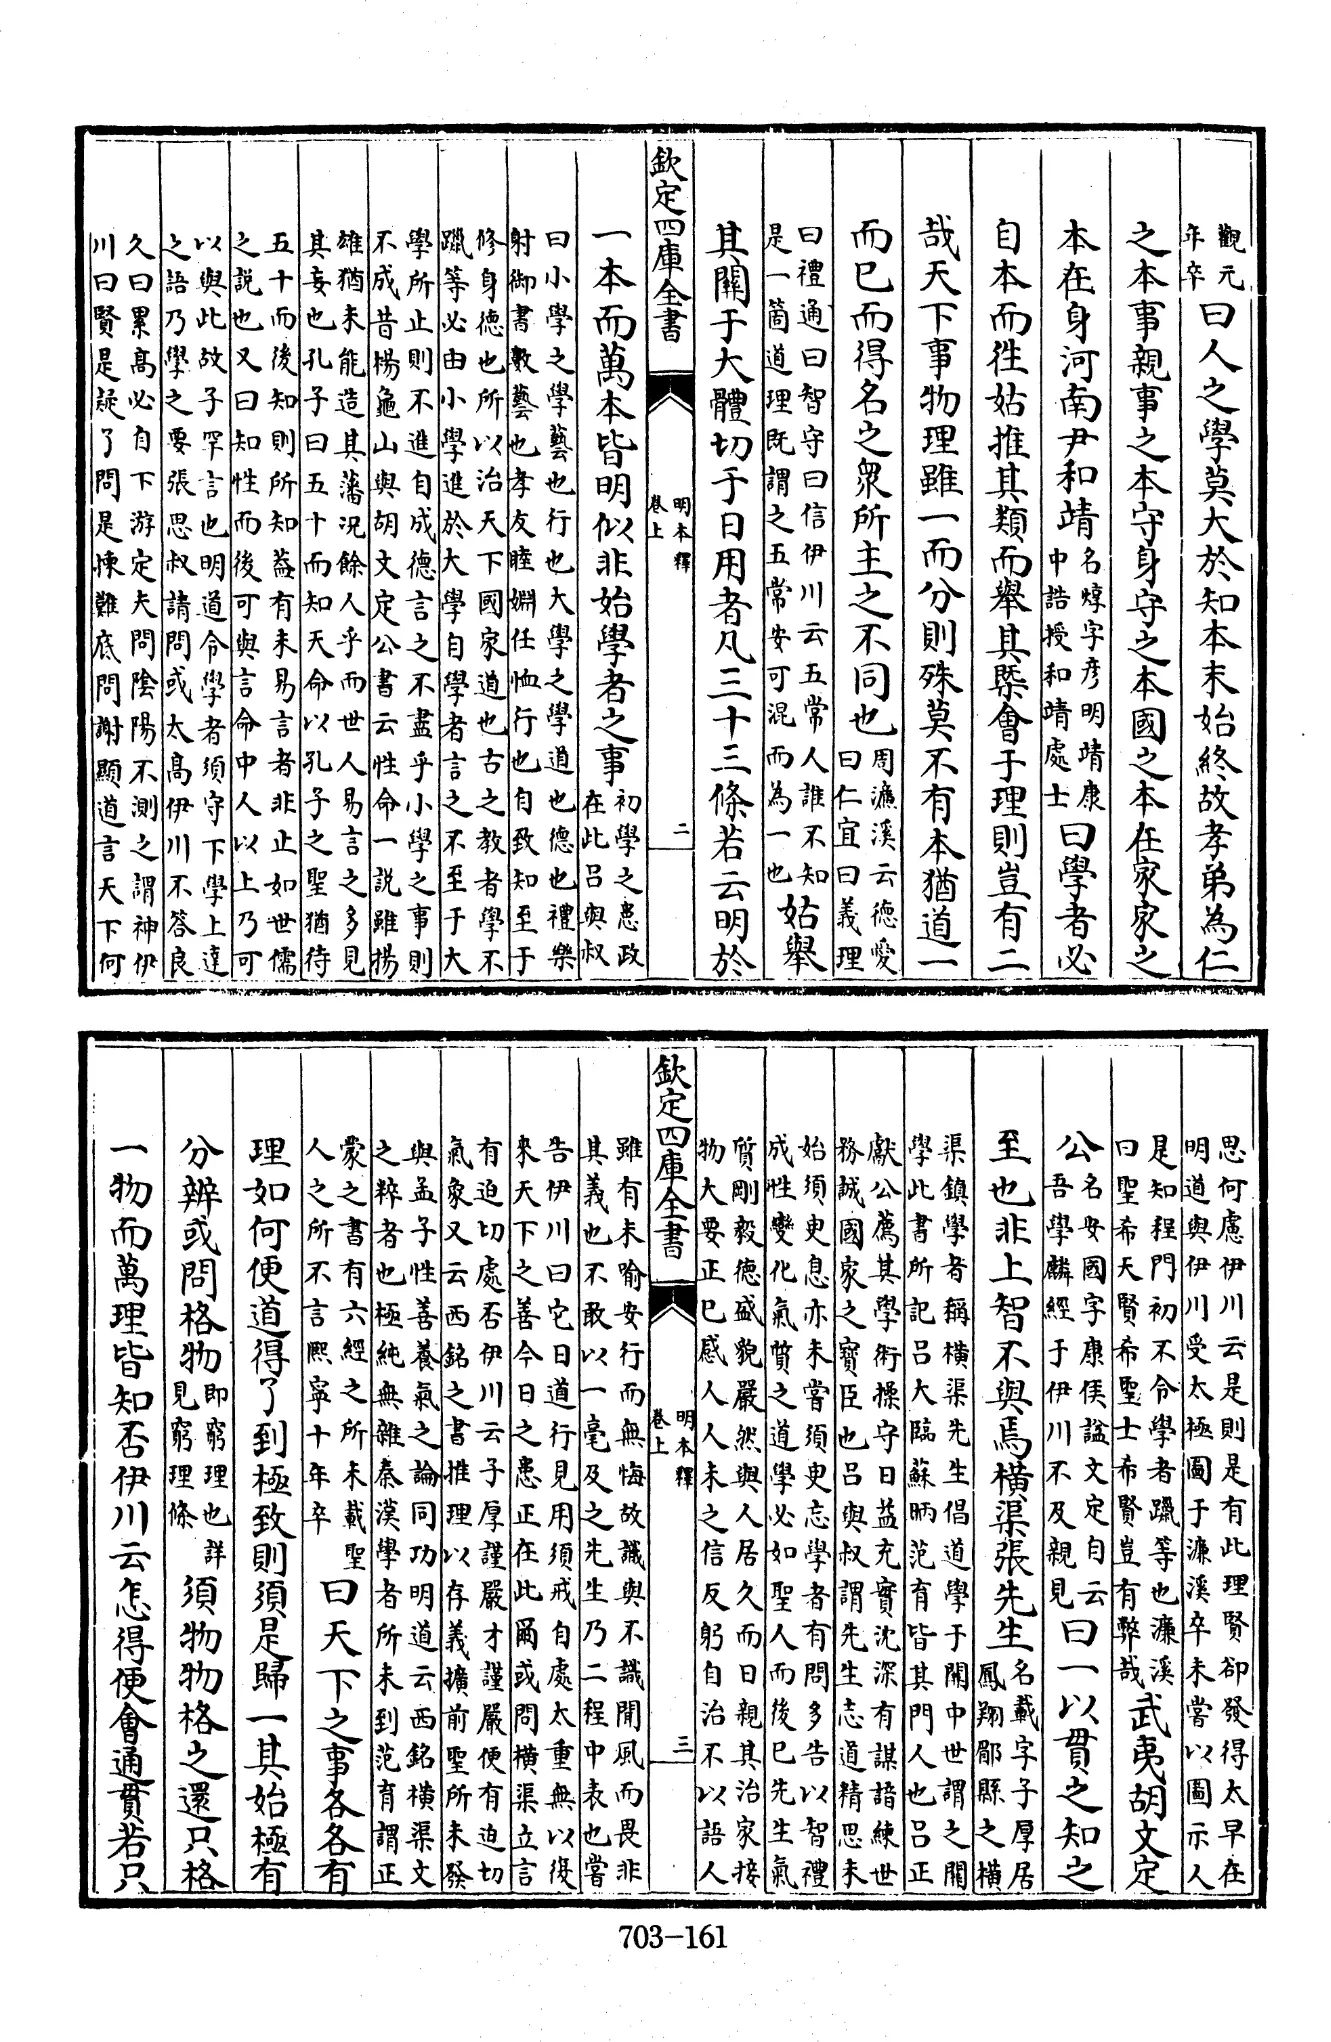 觀元
年卒曰人之學莫大於知本末始終故孝弟為仁
之本事親事之本守身守之本國之本在家家之
本在身河南尹和靖名焞字彥明靖康
中誥授和靖處士曰學者必
自本而徃姑推其類而舉其槩會于理則豈有二
哉天下事物理雖一而分則殊莫不有本猶道一
而已而得名之衆所主之不同也周濂溪云德愛
曰仁宜曰義理
曰禮通曰智守曰信伊川云五常人誰不知
是一箇道理既謂之五常安可混而為一也姑舉
其關于大體切于日用者凡三十三條若云明於
欽定四庫全書
明本釋
卷上
二
一本而萬本皆明似非始學者之事初學之患政
在此呂與叔
曰小學之學藝也行也大學之學道也德也禮樂
射御書數藝也孝友睦婣任恤行也自致知至于
修身德也所以治天下國家道也古之教者學不
躐等必由小學進於大學自學者言之不至于大
學所止則不進自成德言之不盡乎小學之事則
不成昔楊龜山與胡文定公書云性命一說雖揚
雄猶未能造其藩況餘人乎而世人易言之多見
其妄也孔子曰五十而知天命以孔子之聖猶待
五十而後知則所知葢有未易言者非止如世儒
之說也又曰知性而後可與言命中人以上乃可
以與此故子罕言也明道令學者須守下學上達
之語乃學之要張思叔請問或太高伊川不答良
久曰累高必自下游定夫問陰陽不測之謂神伊
川曰賢是疑了問是揀難底問謝顯道言天下何
思何慮伊川云是則是有此理賢卻發得太早在
明道與伊川受太極圖于濂溪卒未嘗以圖示人
是知程門初不令學者躐等也濂溪
曰聖希天賢希聖士希賢豈有弊哉武夷胡文定
公名安國字康侯諡文定自云
吾學麟經于伊川不及親見曰一以貫之知之
至也非上智不與焉橫渠張先生名載字子厚居
鳳翔郿縣之橫
渠鎮學者稱橫渠先生倡道學于關中世謂之關
學此書所記呂大臨蘇昞范育皆其門人也呂正
獻公薦其學術操守日益充實沈深有謀諳練世
務誠國家之寳臣也呂與叔謂先生志道精思未
始須臾息亦未嘗須臾忘學者有問多告以智禮
成性變化氣質之道學必如聖人而後已先生氣
質剛毅德盛貌嚴然與人居久而日親其治家接
物大要正已感人人未之信反躬自治不以語人
欽定四庫全書
明本釋
卷上
三
雖有未喻安行而無悔故識與不識聞風而畏非
其義也不敢以一毫及之先生乃二程中表也嘗
告伊川曰它日道行見用須戒自處太重無以復
來天下之善今日之患正在此爾或問橫渠立言
有迫切處否伊川云子厚謹嚴才謹嚴便有迫切
氣象又云西銘之書推理以存義擴前聖所未發
與孟子性善養氣之論同功明道云西銘橫渠文
之粹者也極純無雜秦漢學者所未到范育謂正
蒙之書有六經之所未載聖
人之所不言熙寧十年卒曰天下之事各各有
理如何便道得了到極致則須是歸一其始極有
分辨或問格物即窮理也詳
見窮理條須物物格之還只格
一物而萬理皆知否伊川云怎得便會通貫若只
703-161